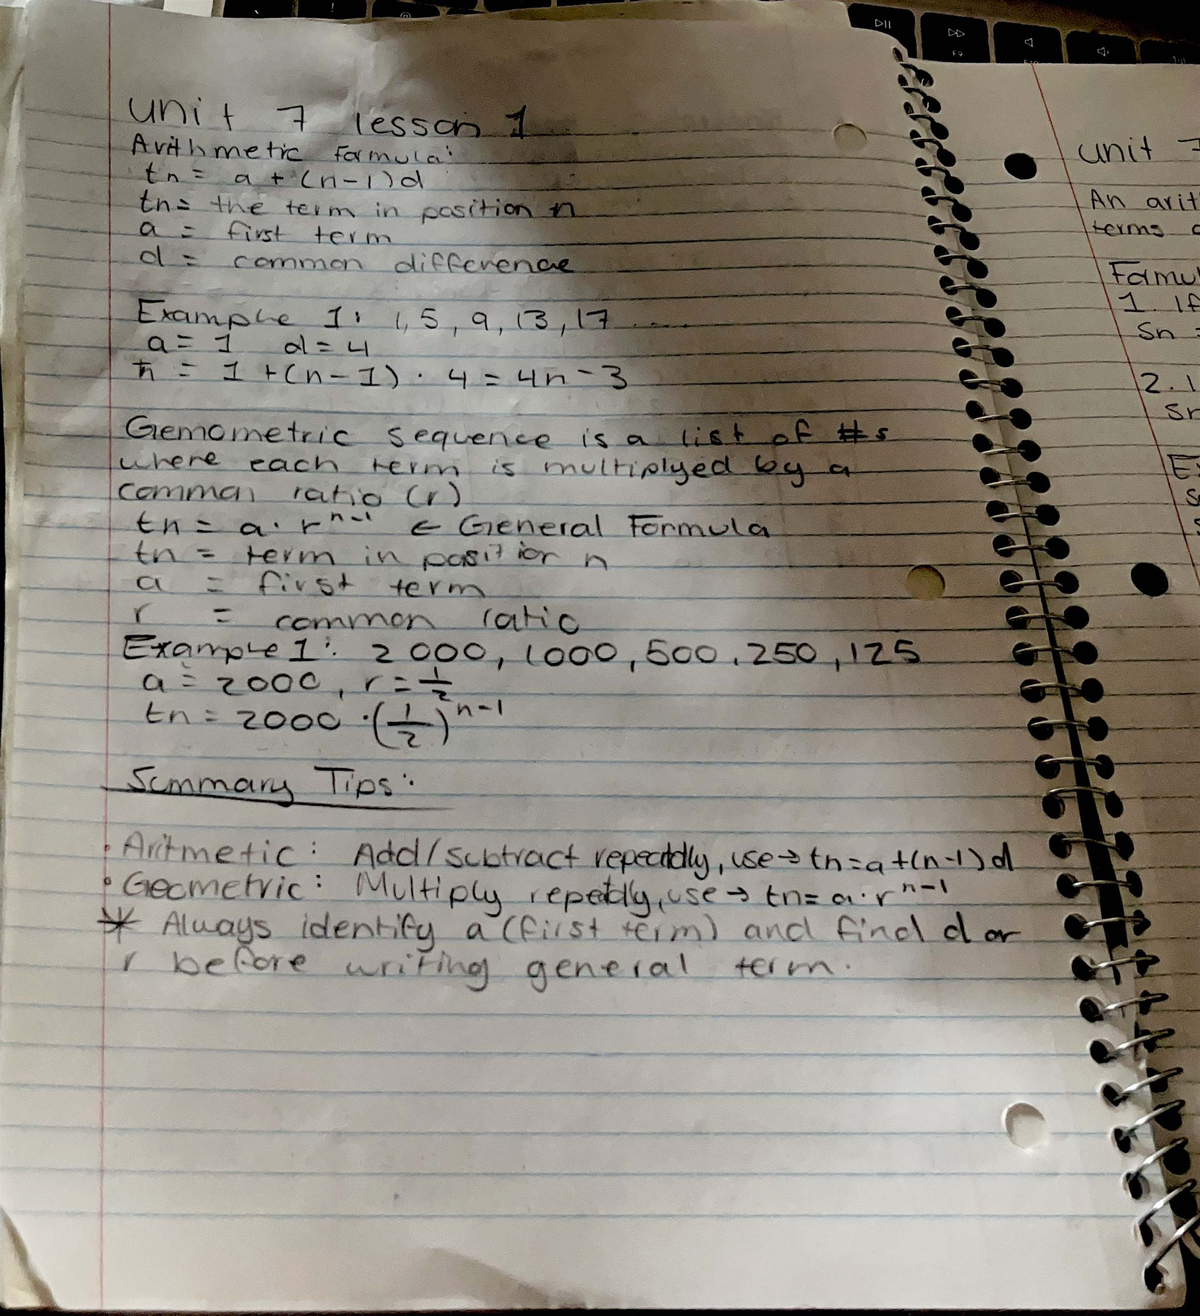 unit 7 lesson 1
Arithmetic formula:
tn = a + (n-1)d
tn = the term in position n
a = first term
d = common difference
Example 1: 1, 5, 9, 13, 17 .....
a = 1 d = 4
tn = 1 + (n - 1) · 4 = 4n - 3
Gemometric sequence is a list of #s
where each term is multiplyed by a
common ratio (r)
tn = a · r^n-1 ← General Formula
tn = term in position n
a = first term
r = common ratio
Example 1: 2000, 1000, 500, 250, 125
a = 2000, r = 1/2
tn = 2000 · (1/2)^n-1
Summary Tips:
• Aritmetic: Add/subtract repeatdly, use → tn = a + (n-1)d
• Geometric: Multiply repetdly, use → tn = a · r^n-1
* Always identify a (first term) and find d or
r before writing general term.
unit 7
An arit
terms
Formul
1. If
Sn =
2. 1
Sn
Ex
S
▷II
▷▷
F9
◁